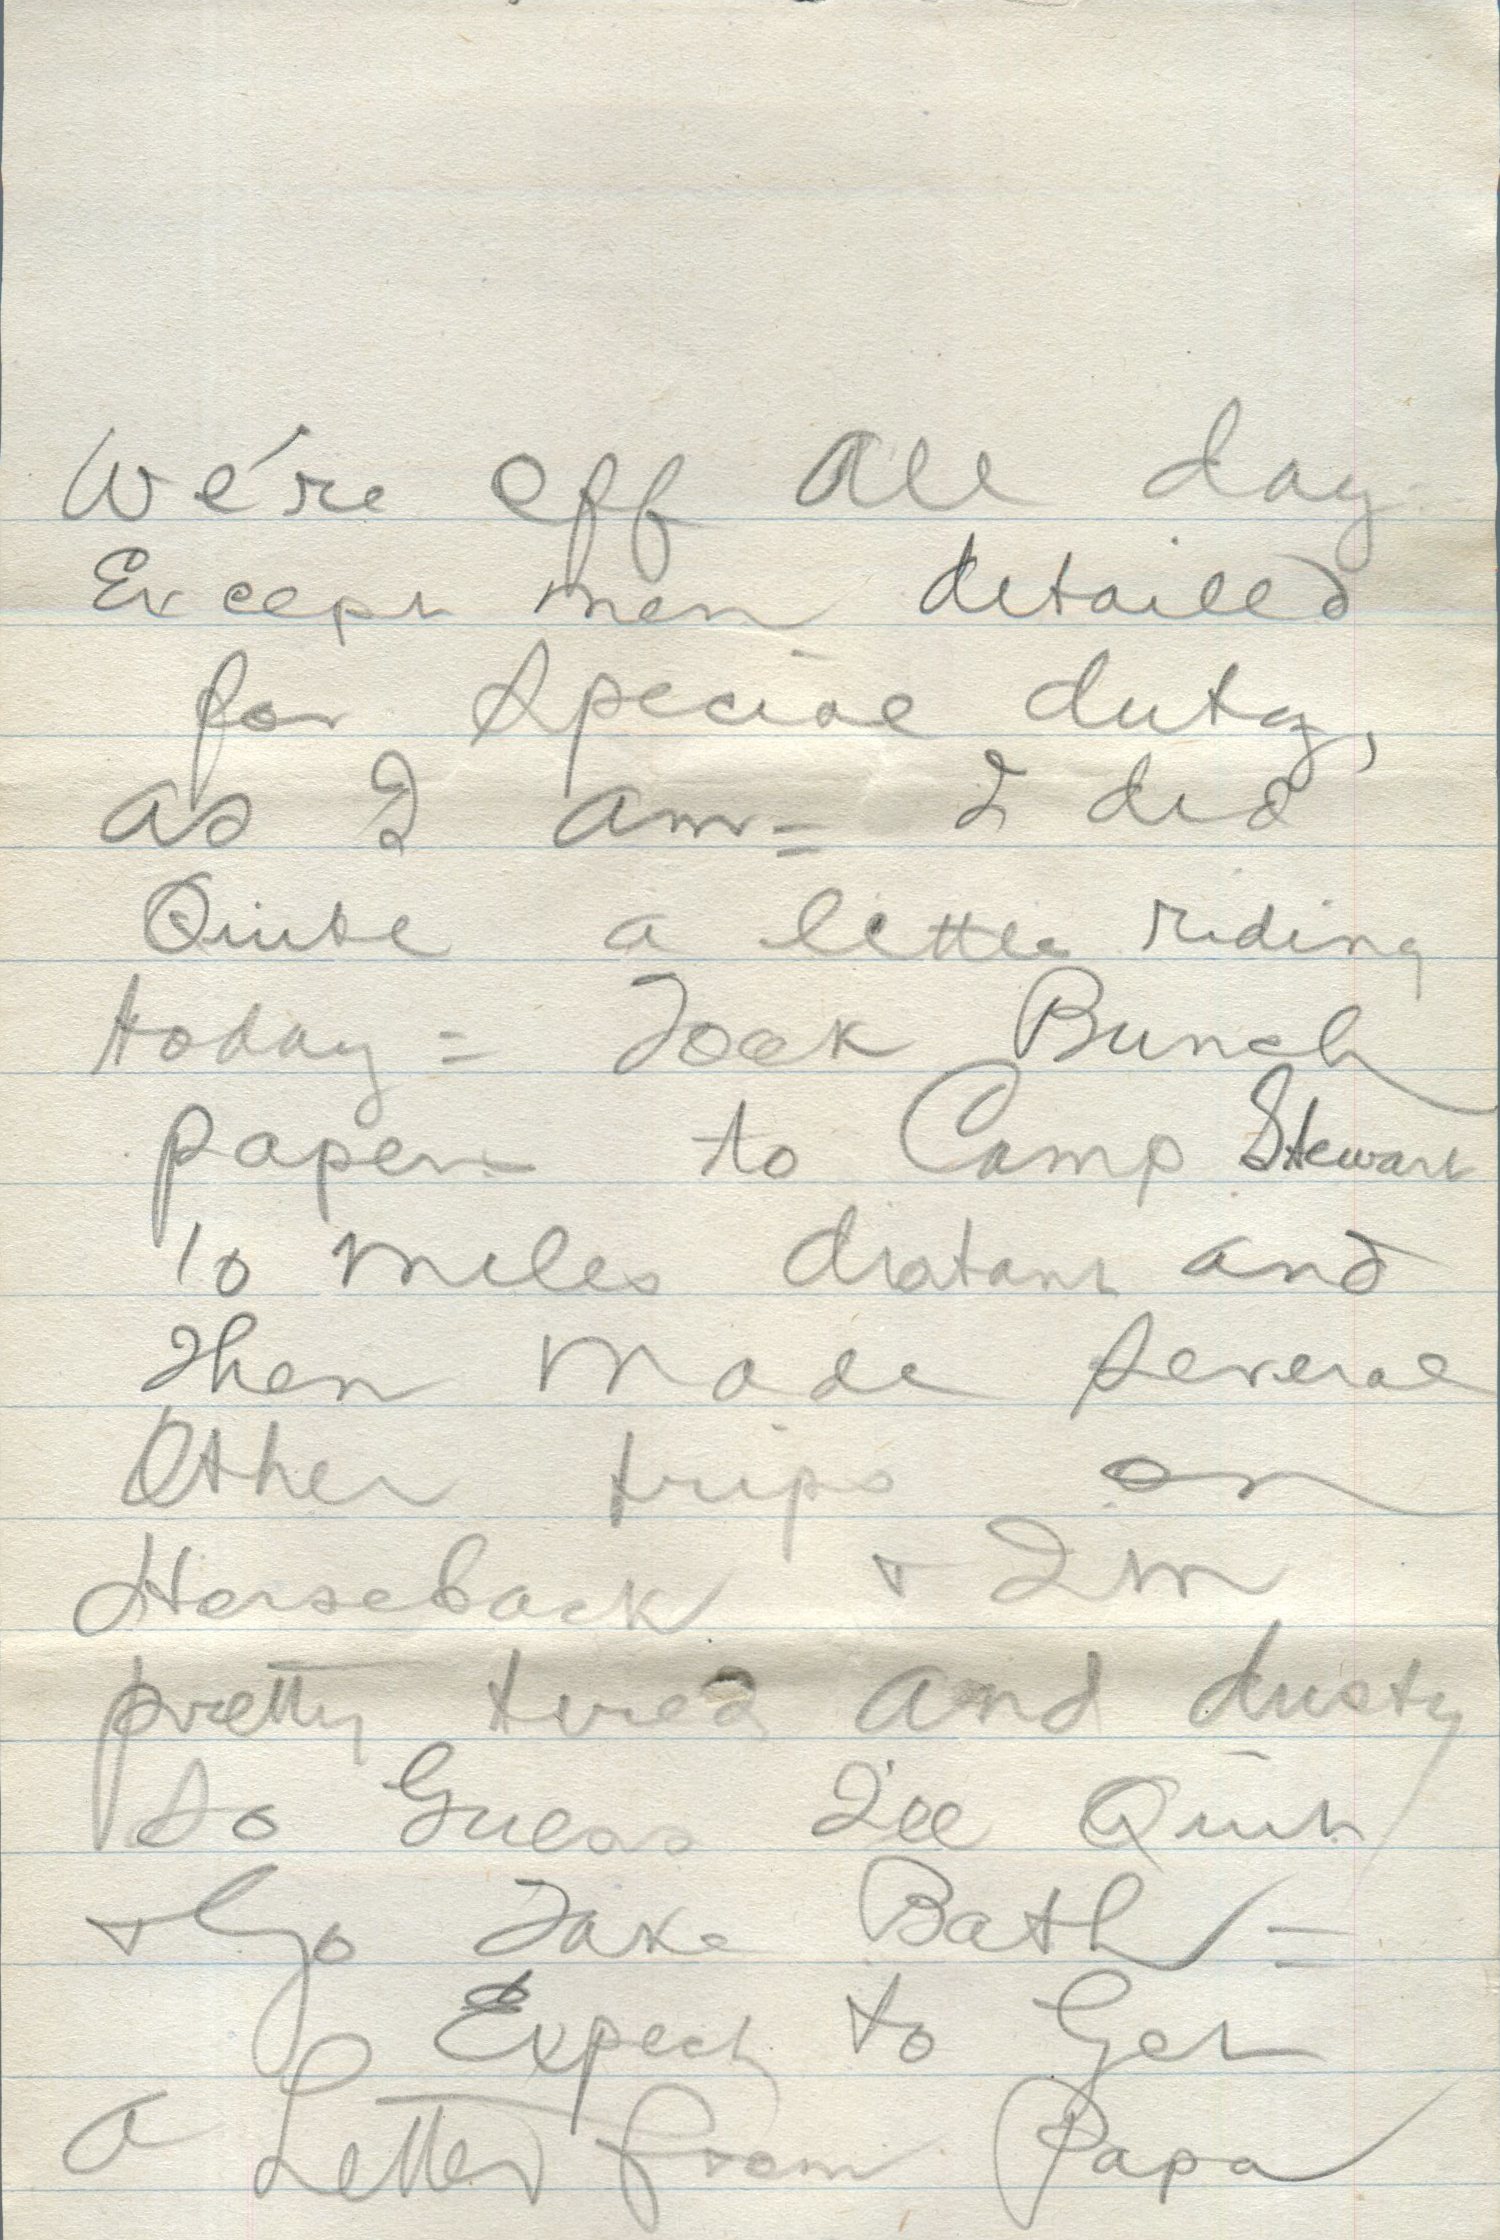 We're off All day.
Except men detailed
for Special duty,
as I am = I did
Quite a little riding
today = Took Bunch
papers to Camp Stewart
10 miles distant and
Then Made several
Other trips on
Horseback + I'm
pretty tired and dusty
So Guess I'll Quit
+ Go Take Bath =
Expect to Get
a Letter from Papa